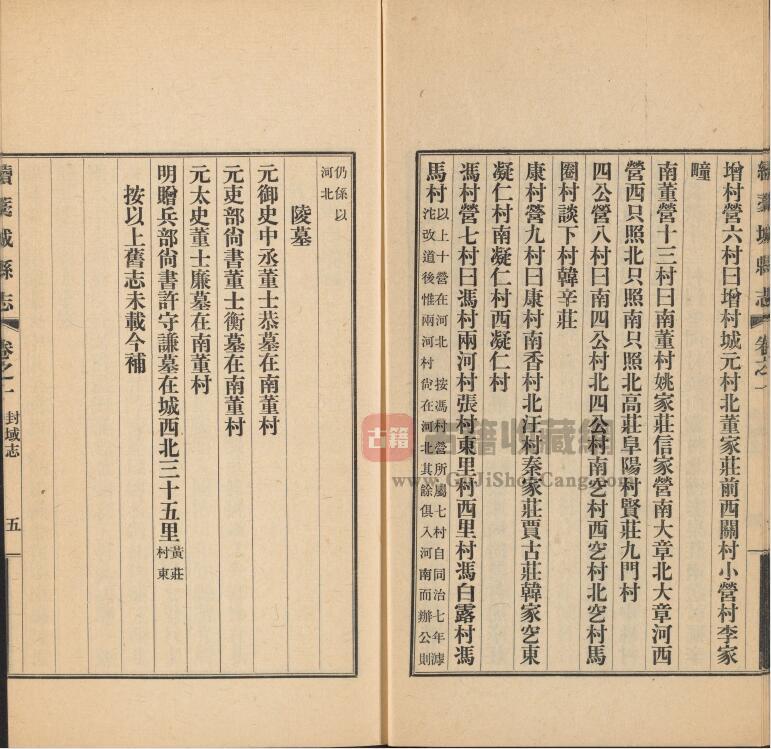 增村營六村曰增村城元村北董家莊前西關村小營村李家
疃
南董營十三村曰南董村姚家莊信家營南大章北大章河西
營西只照北只照南只照北高莊阜陽村賢莊九門村
四公營八村曰南四公村北四公村南穵村西穵村北穵村馬
圈村談下村韓辛莊
康村營九村曰康村南香村北汪村秦家莊賈古莊韓家穵東
凝仁村南凝仁村西凝仁村
馮村營七村曰馮村兩河村張村東里村西里村馮白露村馮
馬村
以上十營在河北 按馮村營所屬七村自同治七年滹
沱改道後惟兩河村尙在河北其餘俱入河南而辦公則
續藁城縣志
卷之一
仍係以
河北
陵墓
元御史中丞董士恭墓在南董村
元吏部尙書董士衡墓在南董村
元太史董士廉墓在南董村
明贈兵部尙書許守謙墓在城西北三十五里
黃莊
村東
按以上舊志未載今補
續藁城縣志
卷之一
封域志
五
古籍
古籍收藏網
www.GuJiShouCang.com